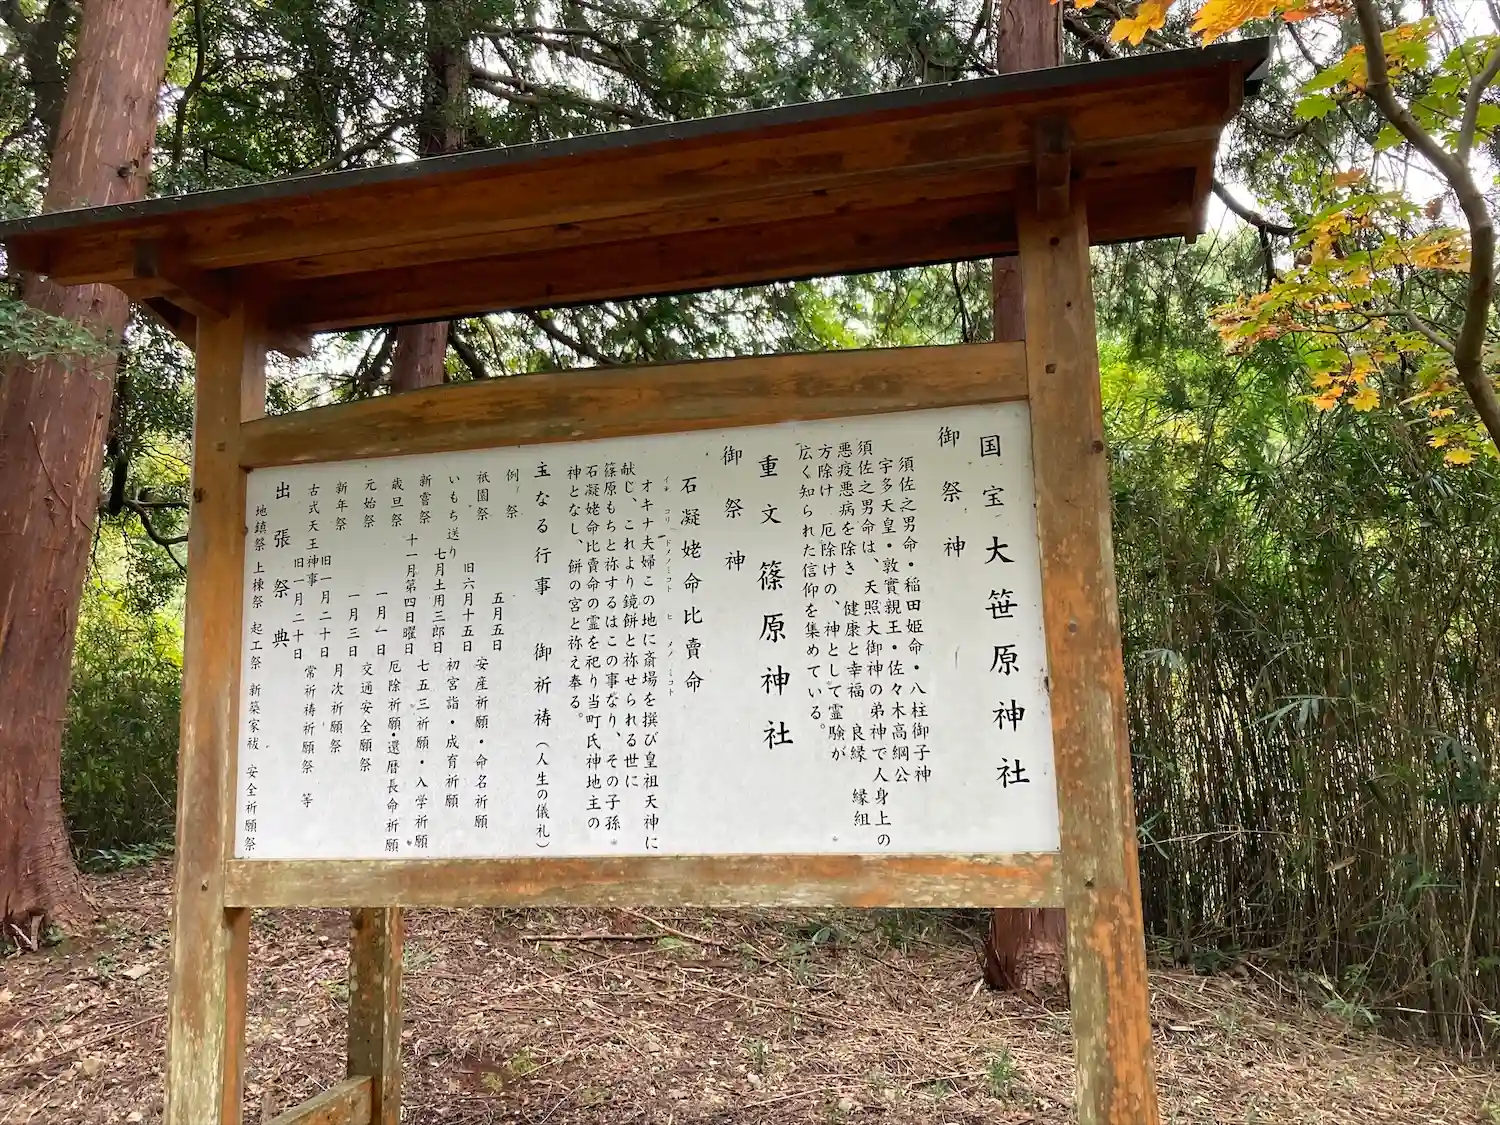 国宝大笹原神社
御祭神
須佐之男命・稲田姫命・八柱御子神
宇多天皇・敦實親王・佐々木高綱公
須佐之男命は、天照大御神の弟神で人身上の
悪疫悪病を除き 健康と幸福 良縁 縁組
方除け 厄除けの、神として霊験が
広く知られた信仰を集めている。
重文 篠原神社
御祭神
石凝姥命比賣命
イシ コリ ドメノミコト ヒ メノミコト
オキナ夫婦この地に斎場を撰び皇祖天神に
献じ、これより鏡餅と祢せられる世に
篠原もちと祢するはこの事なり、その子孫
石凝姥命比賣命の霊を祀り当町氏神地主の
神となし、餅の宮と祢え奉る。
主なる行事 御祈祷（人生の儀礼）
例祭 五月五日 安産祈願・命名祈願
祇園祭 旧六月十五日 初宮詣・成育祈願
いもち送り 七月土用三郎日 七五三祈願・入学祈願
新嘗祭 十一月第四日曜日 厄除祈願・還暦長命祈願
歳旦祭 一月一日 交通安全願祭
元始祭 一月三日 月次祈願祭
新年祭 旧一月二十日 常祈祷祈願祭 等
古式天王神事 旧一月二十日
出張祭典
地鎮祭 上棟祭 起工祭 新築家祓 安全祈願祭